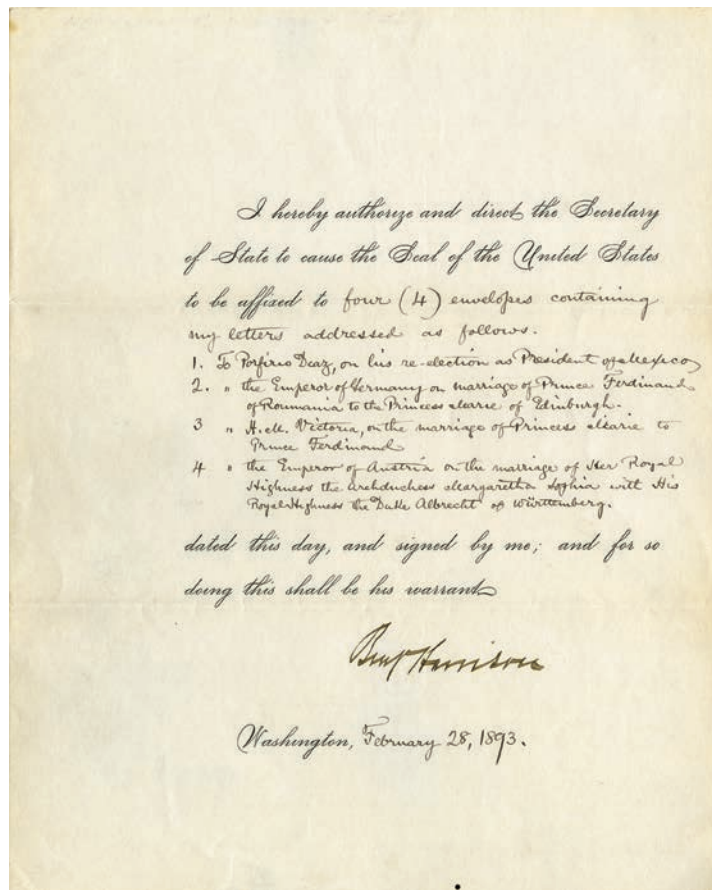 I hereby authorize and direct the Secretary
of State to cause the Seal of the United States
to be affixed to four (4) envelopes containing
my letters addressed as follows.
1. To Porfirio Diaz, on his re-election as President of Mexico
2. " the Emperor of Germany on marriage of Prince Ferdinand
of Roumania to the Princess Marie of Edinburgh.
3 " H.M. Victoria, on the marriage of Princess Marie to
Prince Ferdinand
4 " the Emperor of Austria on the marriage of Her Royal
Highness the Archduchess Margaretha Sophia with His
Royal Highness the Duke Albrecht of Württemberg.
dated this day, and signed by me; and for so
doing this shall be his warrant
Benj Harrison
Washington, February 28, 1893.